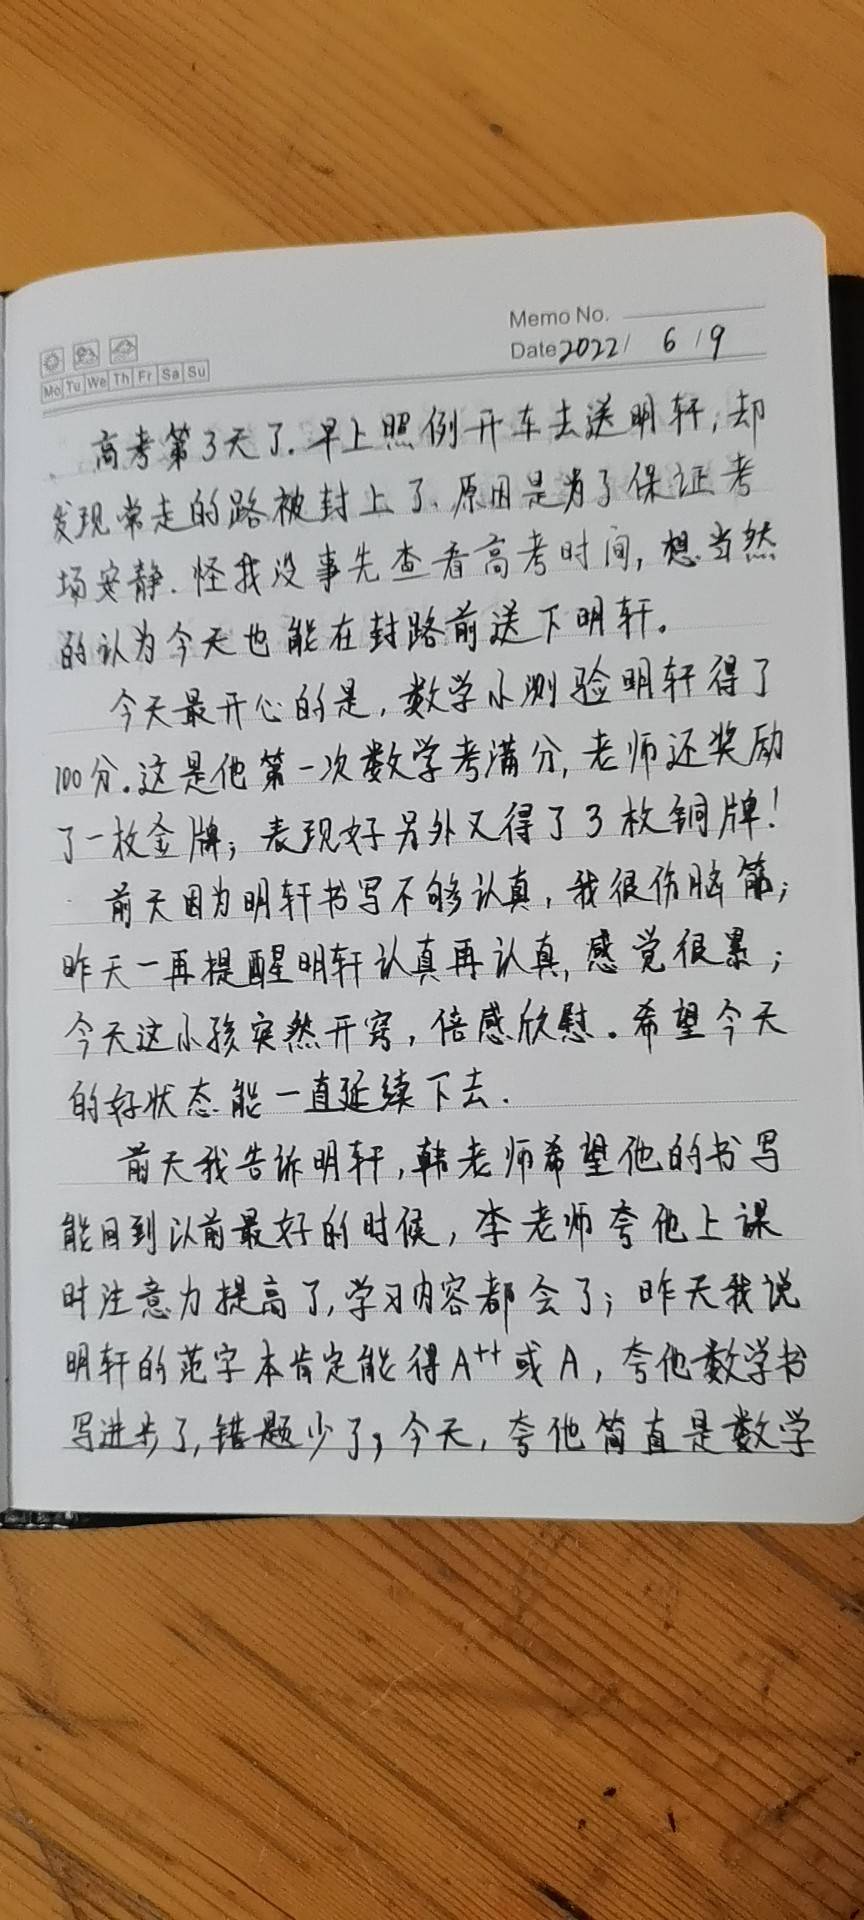 Memo No.
Date 2022/ 6 / 9
Mo Tu We Th Fr Sa Su
高考第3天了.早上照例开车去送明轩,却
发现常走的路被封上了.原因是为了保证考
场安静.怪我没事先查看高考时间,想当然
的认为今天也能在封路前送下明轩。
今天最开心的是,数学小测验明轩得了
100分.这是他第一次数学考满分,老师还奖励
了一枚金牌;表现好另外又得了3枚铜牌!
前天因为明轩书写不够认真,我很伤脑筋;
昨天一再提醒明轩认真再认真,感觉很累;
今天这小孩突然开窍,倍感欣慰.希望今天
的好状态能一直延续下去.
前天我告诉明轩,韩老师希望他的书写
能回到以前最好的时候,李老师夸他上课
时注意力提高了,学习内容都会了;昨天我说
明轩的范字本肯定能得A++或A,夸他数学书
写进步了,错题少了,今天,夸他简直是数学